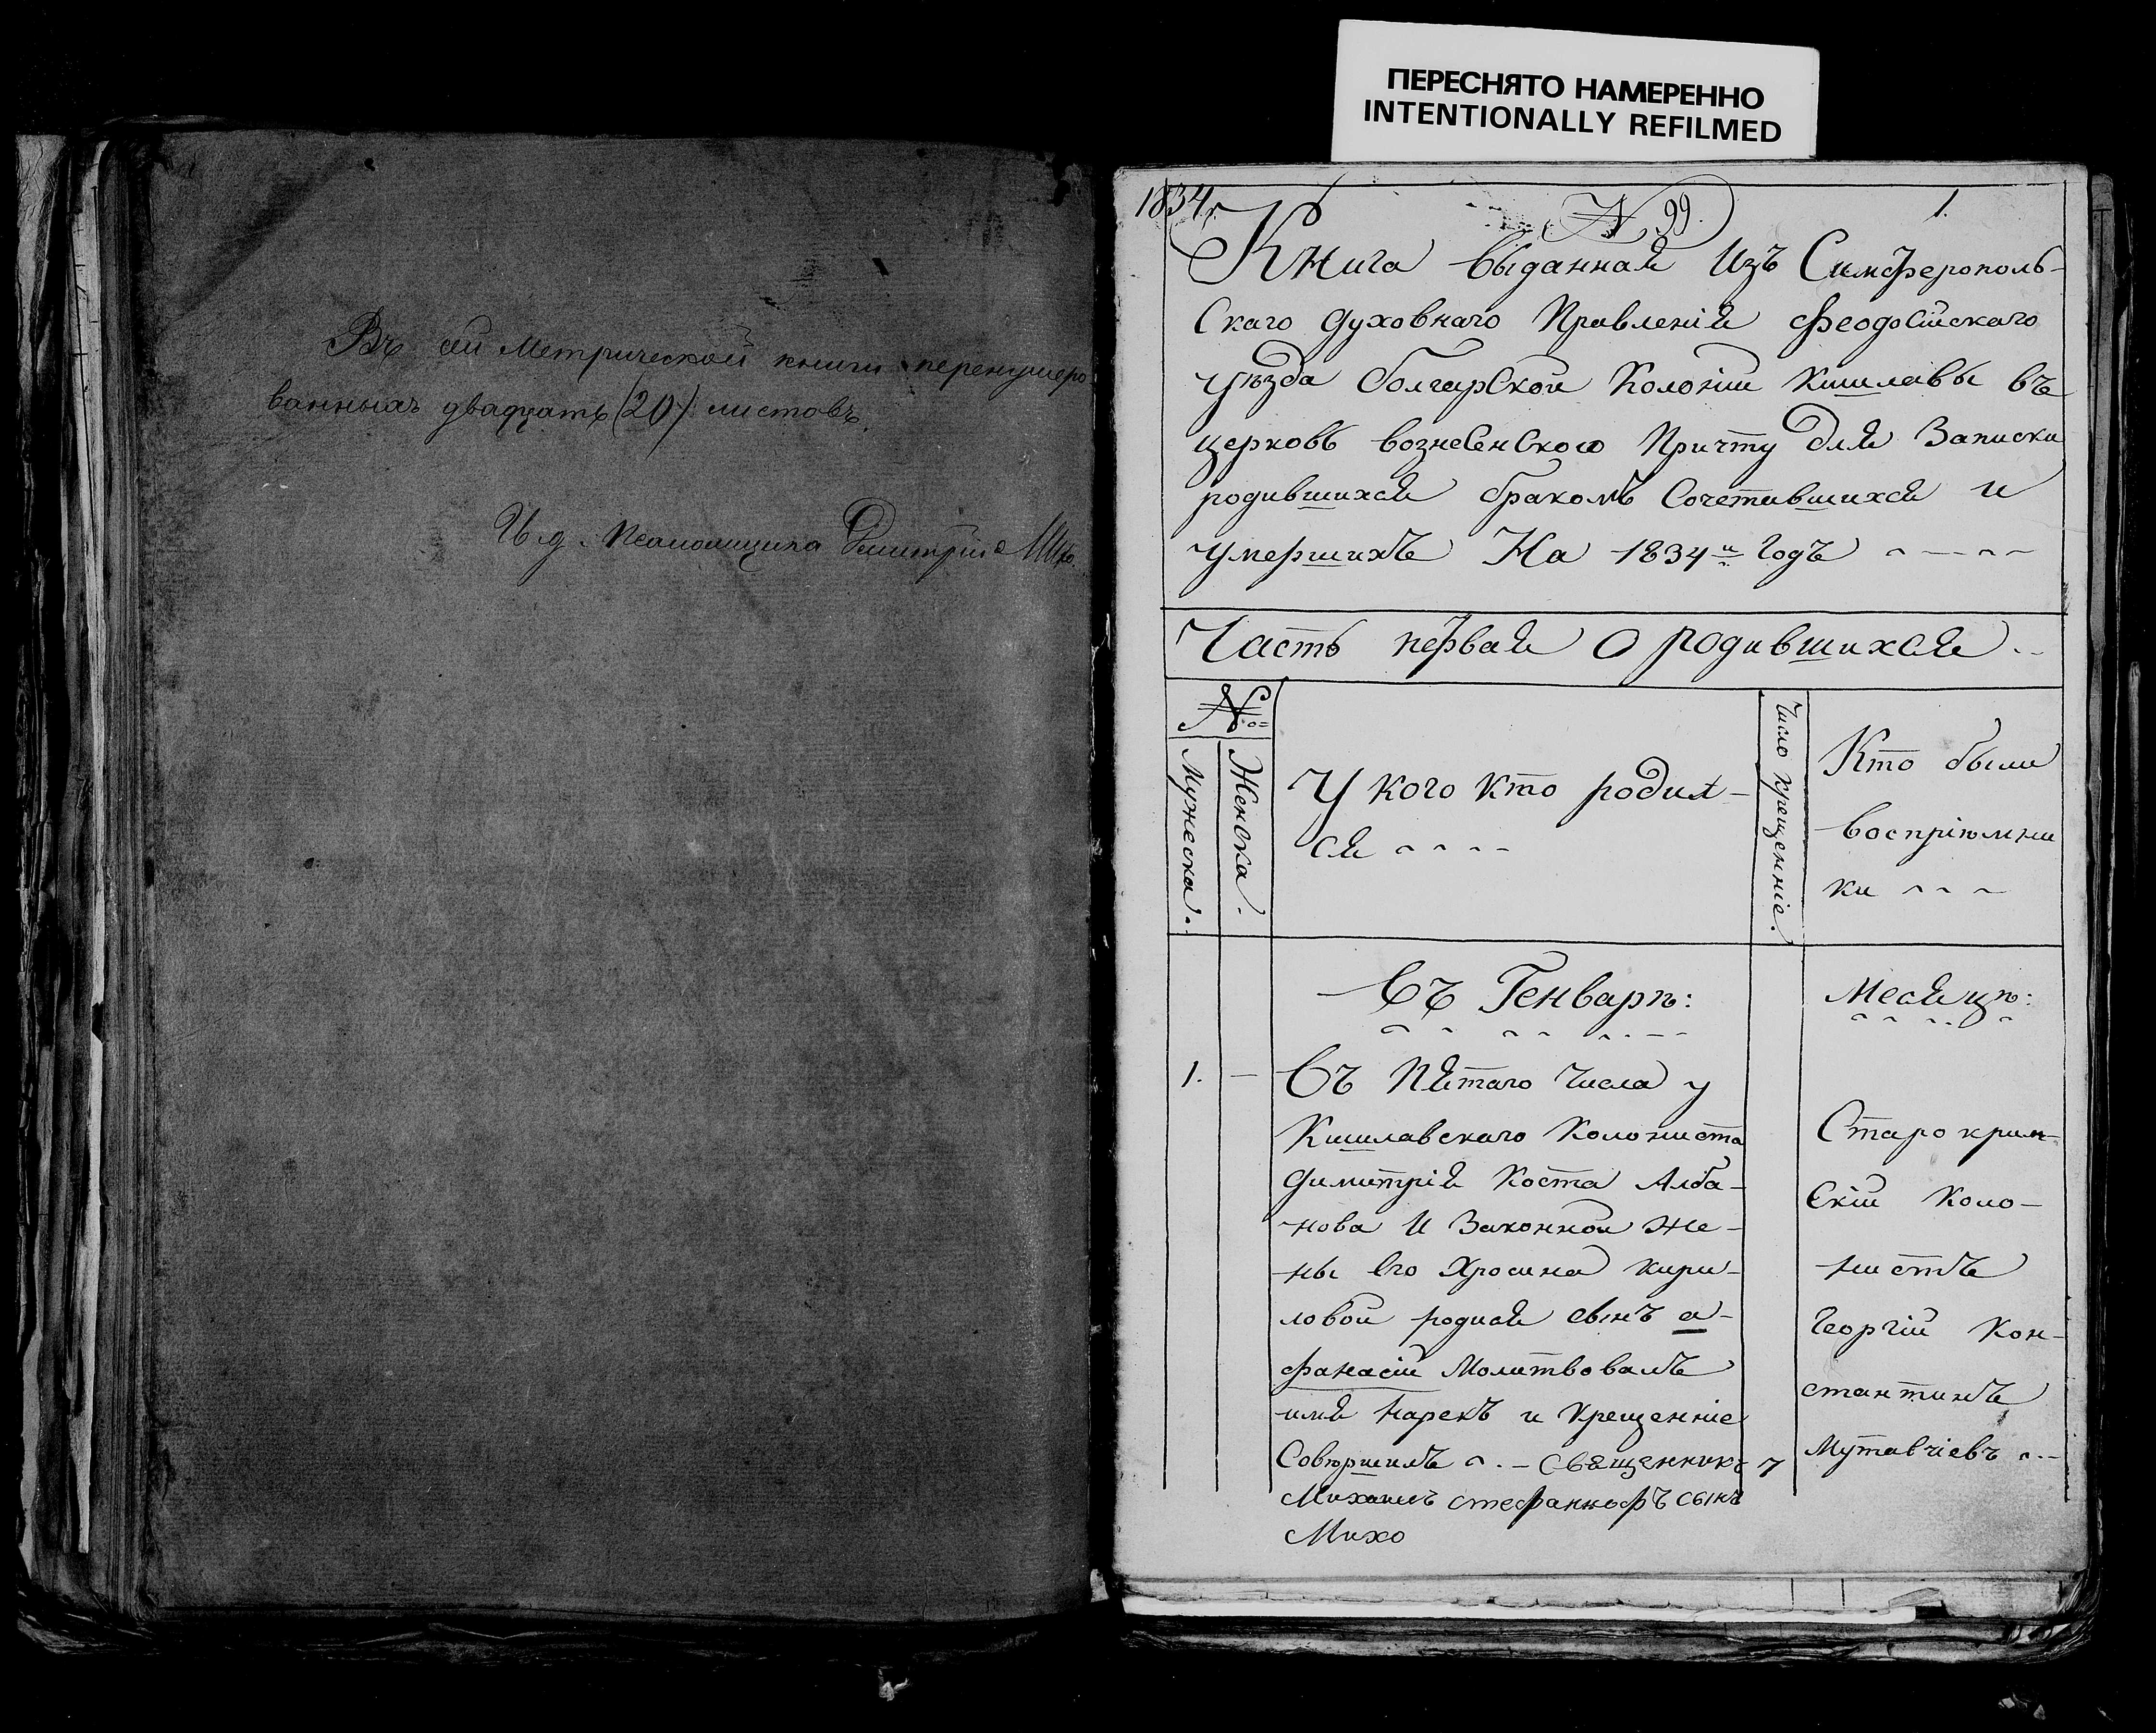 ПЕРЕСНЯТО НАМЕРЕННО
INTENTIONALLY REFILMED
Въ сей Метрической книги перенумеро
ванныхъ двадцать (20) листовъ.
И. д. Псаломщика Димитрій
1834 г. № 99. 1.
Книга выданная Изъ Симферополь-
Скаго Духовнаго Правленія Феодосійскаго
Уѣзда Болгарской Колоніи Кишлавы въ
церковь вознесенского Причту Для Записки
родившихся бракомъ Сочетавшихся и
умершихъ На 1834 й Годъ
Часть первая О родившихся
№
Мужеска.
Женска.
У кого кто родил-
ся
Число крещенніе.
Кто были
воспріюмни
ки
Въ Генварѣ: Месяцѣ:
1. — Въ Пятаго Числа у
Кишлавскаго Колониста
Димитрія Коста Алба-
нова И Законной Же-
ны Его Хросина кири-
ловой родися сынъ а-
фанасій Молитвовалъ
имя Нарекъ и Крещенніе
Совюршилъ — Священникъ 7
Михаилъ стефанкофъ сынъ
Михо
Старокрим-
Скій Коло-
нистъ
Георгій Кон-
стантинъ
Мутавчіевъ